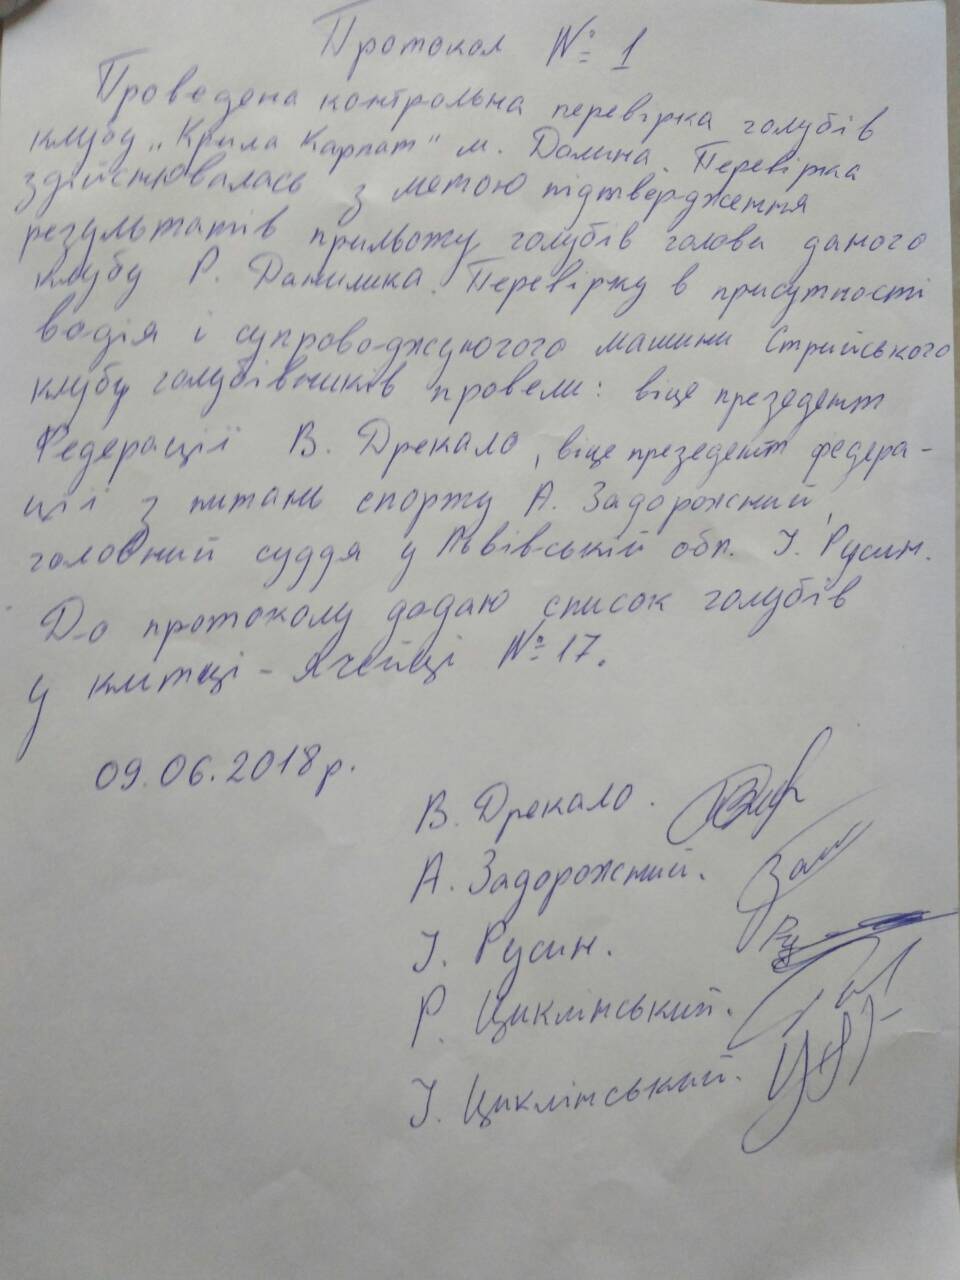 Протокол № 1
Проведена контрольна перевірка голубів
клубу „Крила Карпат" м. Долина. Перевірка
здійснювалась з метою підтвердження
результатів прильоту голубів голови даного
клубу Р. Данилика. Перевірку в присутності
водія і супроводжуючого машини Стрийського
клубу голубівників провели: віце президент
Федерації В. Дрекало, віце президент федера-
ції з питань спорту А. Задорожний,
головний суддя у Львівській обл. І. Русин.
До протоколу додаю список голубів
у клітці - ячейці № 17.
09.06.2018 р.
В. Дрекало.
А. Задорожний.
І. Русин.
Р. Циклінський.
І. Циклінський.